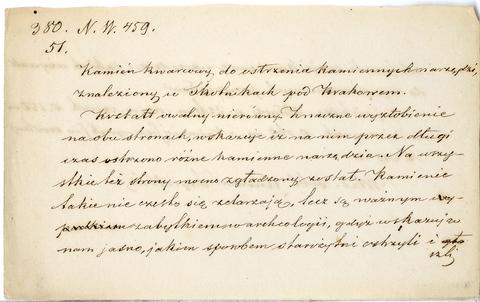 380. N. W. 459.
51.
Kamień kwarcowy do ostrzenia kamiennych narzędzi,
znaleziony w Skotnikach pod Krakowem.
Kształt owalny nierówny. Znaczne wyżłobienie
na obu stronach, wskazuje iż na nim przez długi
czas ostrzono różne kamienne narzędzia. Na wszy-
stkie też strony mocno zgładzony został. Kamienie
takie nie często się zdarzają, lecz są ważnym
zabytkiem w archeologii, gdyż wskazują
nam jasno, jakim sposobem starożytni ostrzyli i gła
dzili